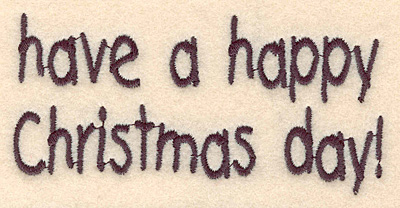 have a happy
Christmas day!